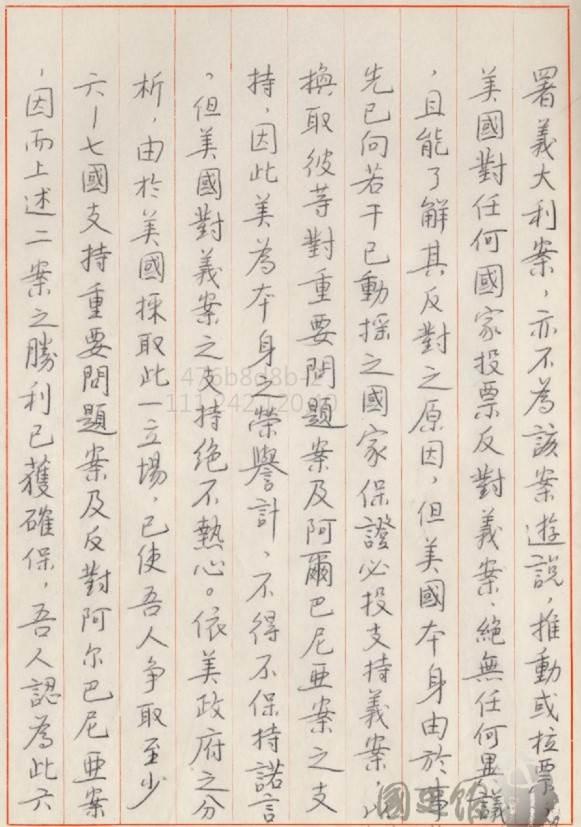 署義大利案,亦不為該案遊說,推動或拉票,
美國對任何國家投票反對義案、絕無任何異議
,且能了解其反對之原因,但美國本身由於事
先已向若干已動搖之國家保證必投支持義案,以
換取彼等對重要問題案及阿爾巴尼亜案之支
持,因此美為本身之榮譽計、不得不保持諾言
。但美國對義案之支持絕不熱心。依美政府之分
析,由於美國採取此一立場,已使吾人爭取至少
六-七國支持重要問題案及反對阿尔巴尼亜案
,因而上述二案之勝利已獲確保,吾人認為此六
476b8d8b-f2
111.242.120.
國史館